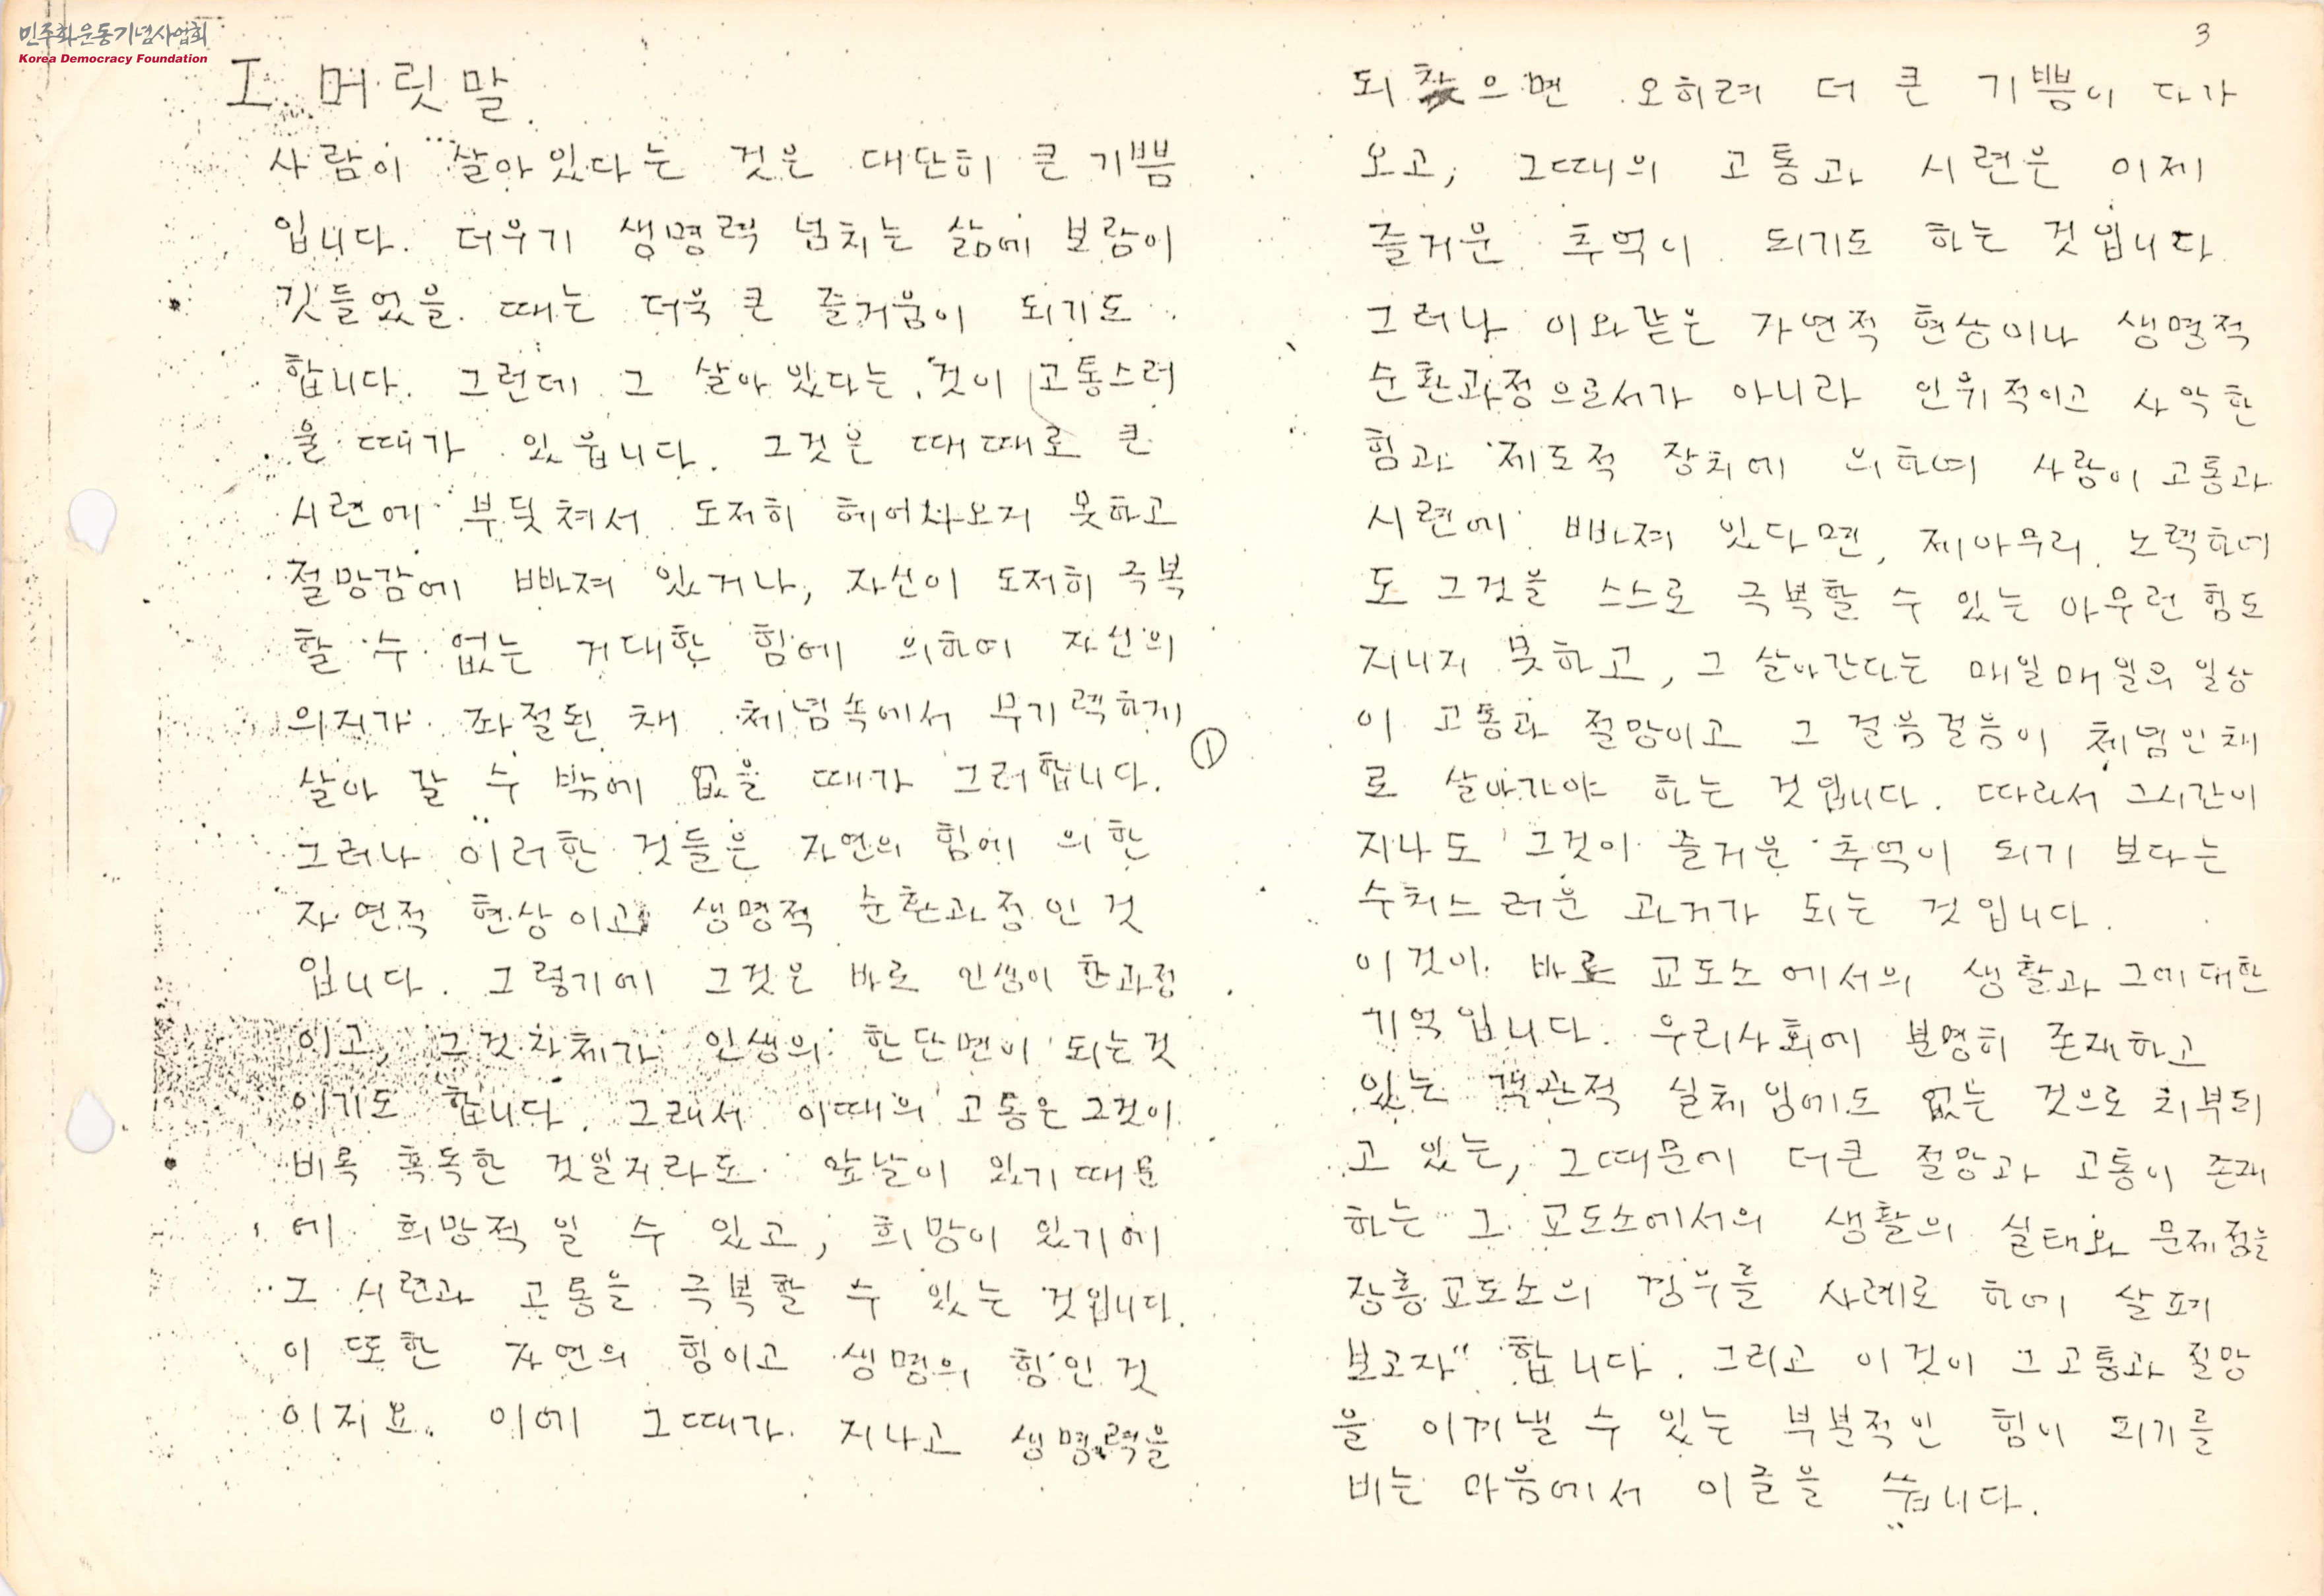 민주화운동기념사업회
Korea Democracy Foundation
I. 머릿말.
사람이 살아있다는 것은 대단히 큰 기쁨
입니다. 더우기 생명력 넘치는 삶에 보람이
깃들었을 때는 더욱 큰 즐거움이 되기도
합니다. 그런데 그 살아 있다는 것이 고통스러
울 때가 있읍니다. 그것은 때때로 큰
시련에 부딪쳐서 도저히 헤어나오지 못하고
절망감에 빠져 있거나, 자신이 도저히 극복
할 수 없는 거대한 힘에 의하여 자신의
의지가 좌절된 채 체념속에서 무기력하게
살아 갈 수 밖에 없을 때가 그러합니다.
①
그러나 이러한 것들은 자연의 힘에 의한
자연적 현상이고 생명적 순환과정인 것
입니다. 그렇기에 그것은 바로 인생이 한과정
이고, 그것 자체가 인생의 한단면이 되는것
이기도 합니다. 그래서 이때의 고통은 그것이
비록 혹독한 것일지라도 앞날이 있기 때문
에 희망적 일 수 있고, 희망이 있기에
그 시련과 고통을 극복할 수 있는 것입니다.
이 또한 자연의 힘이고 생명의 힘인 것
이지요. 이에 그때가 지나고 생명력을
3
되찾으면 오히려 더 큰 기쁨이 다가
오고, 그때의 고통과 시련은 이제
즐거운 추억이 되기도 하는 것입니다
그러나 이와같은 자연적 현상이나 생명적
순환과정으로서가 아니라 인위적이고 사악한
힘과 제도적 장치에 의하여 사람이 고통과
시련에 빠져 있다면, 제아무리 노력하여
도 그것을 스스로 극복할 수 있는 아무런 힘도
지니지 못하고, 그 살아간다는 매일매일의 일상
이 고통과 절망이고 그 걸음걸음이 체념인채
로 살아가야 하는 것입니다. 따라서 그시간이
지나도 그것이 즐거운 추억이 되기 보다는
수치스러운 과거가 되는 것입니다.
이것이 바로 교도소에서의 생활과 그에대한
기억입니다. 우리사회에 분명히 존재하고
있는 객관적 실체임에도 없는 것으로 치부되
고 있는, 그때문에 더큰 절망과 고통이 존재
하는 그 교도소에서의 생활의 실태와 문제점을
장흥교도소의 경우를 사례로 하여 살펴
보고자 합니다. 그리고 이것이 그 고통과 절망
을 이겨낼 수 있는 부분적인 힘이 되기를
비는 마음에서 이글을 씁니다.